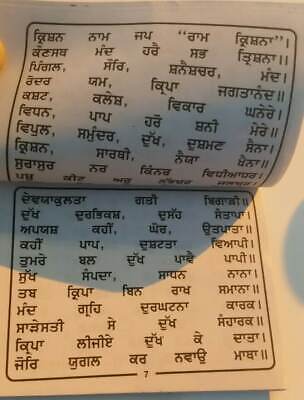 ਕ੍ਰਿਸ਼ਨ ਨਾਮ ਜਪ "ਰਾਮ ਕ੍ਰਿਸ਼ਨਾ"।
ਕੰਣਸਥ ਮੰਦ ਹਰੈ ਸਭ ਤ੍ਰਿਸ਼ਨਾ॥
ਪਿੰਗਲ, ਸੌਰਿ, ਸ਼ਨੈਸ਼ਚਰ, ਮੰਦ।
ਰੋਦਰ ਯਮ, ਕ੍ਰਿਪਾ ਜਗਤਾਨੰਦ॥
ਕਸ਼ਟ, ਕਲੇਸ਼, ਵਿਕਾਰ ਘਨੇਰੇ।
ਵਿਘਨ, ਪਾਪ ਹਰੋ ਸ਼ਨੀ ਮੇਰੇ॥
ਵਿਪੁਲ, ਸਮੁੰਦਰ, ਦੁੱਖ, ਦੁਸ਼ਮਣ ਸੈਨਾ।
ਕ੍ਰਿਸ਼ਨ, ਸਾਰਥੀ, ਨੈਯਾ ਖੇਨਾ॥
ਸੁਰਾਸੁਰ ਨਰ ਕਿੰਨਰ ਵਿਧੀਆਧਰ।
ਪਸ਼ੂ ਕੀਟ ਅਰੁ
ਦੇਵਯਾਕੁਲਤਾ ਗਤੀ ਬਿਗਾੜੀ॥
ਦੁੱਖ ਦੁਰਭਿਕਸ਼, ਦੁਸੱਹ ਸੰਤਾਪਾ।
ਅਪਯਸ਼ ਕਹੀਂ, ਘੋਰ, ਉਤਪਾਤਾ॥
ਕਹੀਂ ਪਾਪ, ਦੁਸ਼ਟਤਾ ਵਿਆਪੀ।
ਤੁਮਰੇ ਬਲ ਦੁੱਖ ਪਾਵੈ ਪਾਪੀ॥
ਸੁੱਖ ਸੰਪਦਾ, ਸਾਧਨ ਨਾਨਾ।
ਤਬ ਕ੍ਰਿਪਾ ਬਿਨ ਰਾਖ ਸਮਾਨਾ॥
ਮੰਦ ਗ੍ਰਹਿ ਦੁਰਘਟਨਾ ਕਾਰਕ।
ਸਾੜੇਸਤੀ ਸੇ ਦੁੱਖ ਸੰਹਾਰਕ॥
ਕ੍ਰਿਪਾ ਲੀਜੀਏ ਦੁੱਖ ਕੇ ਦਾਤਾ।
ਜੋਰਿ ਯੁਗਲ ਕਰ ਨਵਾਊਂ ਮਾਥਾ॥
7